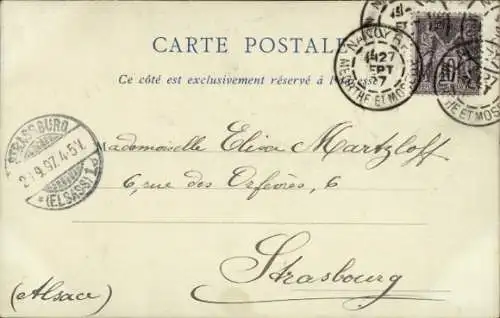 CARTE POSTALE
Ce côté est exclusivement réservé à l'adresse
NANCY
27
SEPT
97
MEURTHE ET MOSELLE
10
STRASSBURG
9.97.4-5N.
*(ELSASS)1
Mademoiselle Elisa Martzloff
6, rue des Orfèvres, 6
Strasbourg
(Alsace)